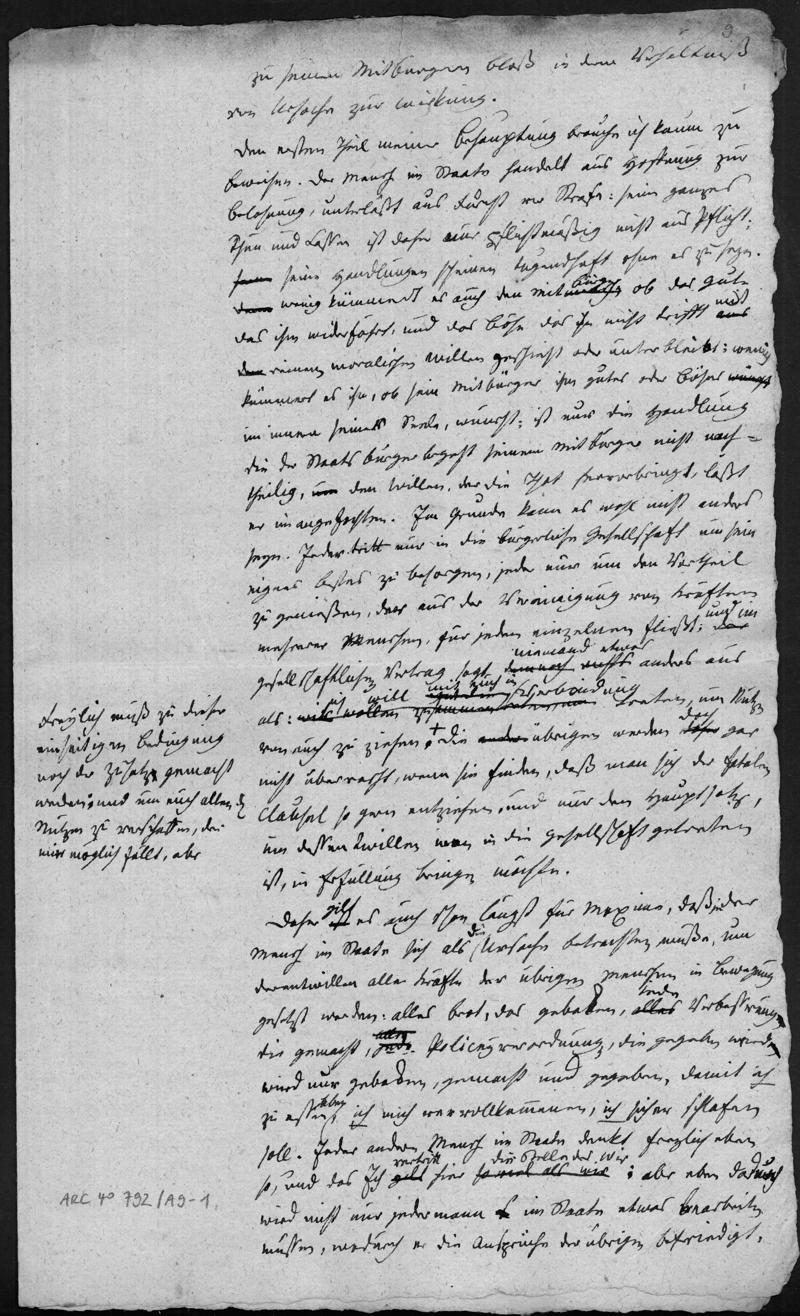 9
zu seinen Mitburgern bloß in dem Verhältniß
von Ursache zur wirkung.
Den ersten Theil meiner Behauptung brauche ich kaum zu
beweisen. Der Mensch im Staate handelt aus Hoffnung zur
belohnung, unterläßt aus Furcht vor Strafe: sein ganzes
Thun und Lassen ist daher nur pflichtmäßig nicht aus Pflicht;
seine Handlungen scheinen tugendhaft ohne es zu seyn.
wenig kümmert es auch den mitbürger ob das gute
das ihm widerfährt, und das böse das ihn nicht trifft mit
reinem moralischen willen geschieht oder unterbleibt: wenig
kümmert es ihn, ob sein Mitbürger ihm gutes oder böses
im innern seiner Seele, wünscht; ist nur die Handlung
die der Staatsbürger begeht seinem Mitbürger nicht nach=
theilig, den Willen, der die That hervorbringt, läßt
er unangefochten. Im Grunde kann es wohl nicht anders
seyn. Jeder tritt nur in die bürgerliche Gesellschaft um sein
eignes bestes zu besorgen, jeder nur um den Vortheil
zu genießen, der aus der Vereinigung von Kräften
mehrerer Menschen, für jeden einzelnen fließt; und im
gesellschaftlichen Vertrag sagt niemand etwas anders aus
als: ich will mit euch in Verbindung treten, um Nutzen
von euch zu ziehen + die übrigen werden doch gar
nicht überrascht, wenn sie finden, daß man sich der fatalen
Clausel so gern entziehen, und nur den Hauptsatz,
um dessentwillen man in die gesellschaft getreten
ist, in Erfüllung bringen möchte.
Freylich muß zu dieser
einseitigen bedingung
noch der Zusatz gemacht
werden: und um euch allen den
Nutzen zu verschaffen, der
mir möglich fällt, aber
Daher gilt es auch schon längst für Maxime, daß jeder
Mensch im Staate sich als die Ursache betrachten müße, um
derentwillen alle Kräfte der übrigen Menschen in bewegung
gesetzt werden: alles brot, das gebaken, jede Verbesserung
die gemacht, Policeyverordnung, die gegeben wird
wird nur gebaken, gemacht und gegeben, damit ich
zu essen haben, ich mich vervollkommnen, ich sicher schlafen
soll. Jeder andere Mensch im Staate denkt freylich eben
so, und das Ich vertritt hier die Stelle des Wir; aber eben dadurch
wird nicht nur jedermann im Staate etwas bearbeiten
müssen, wodurch er die Ansprüche der übrigen befriedigt,
ARC 4° 792/A9-1